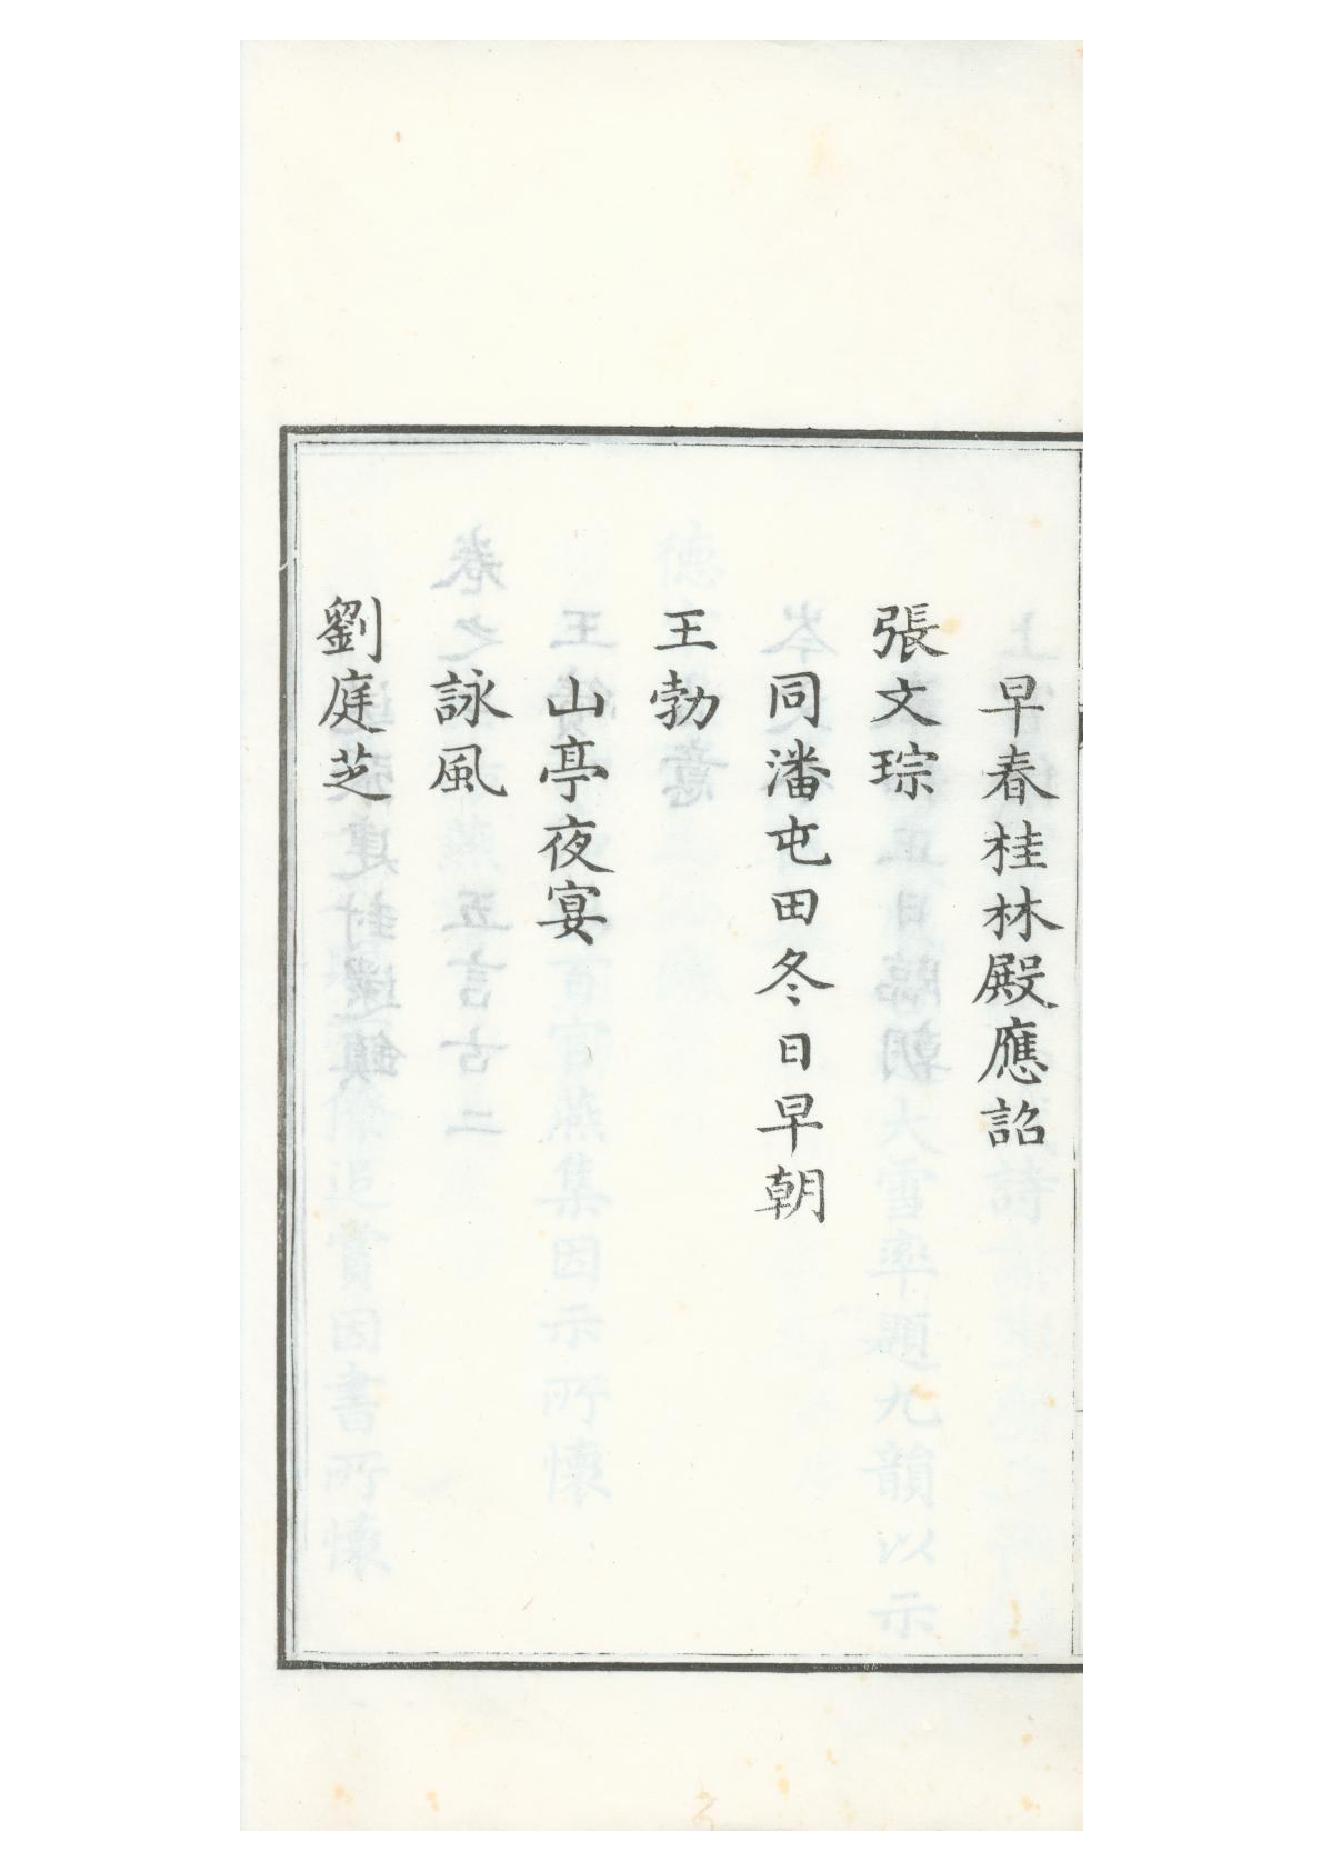 早春桂林殿應詔
張文琮
同潘屯田冬日早朝
王勃
山亭夜宴
詠風
劉庭芝